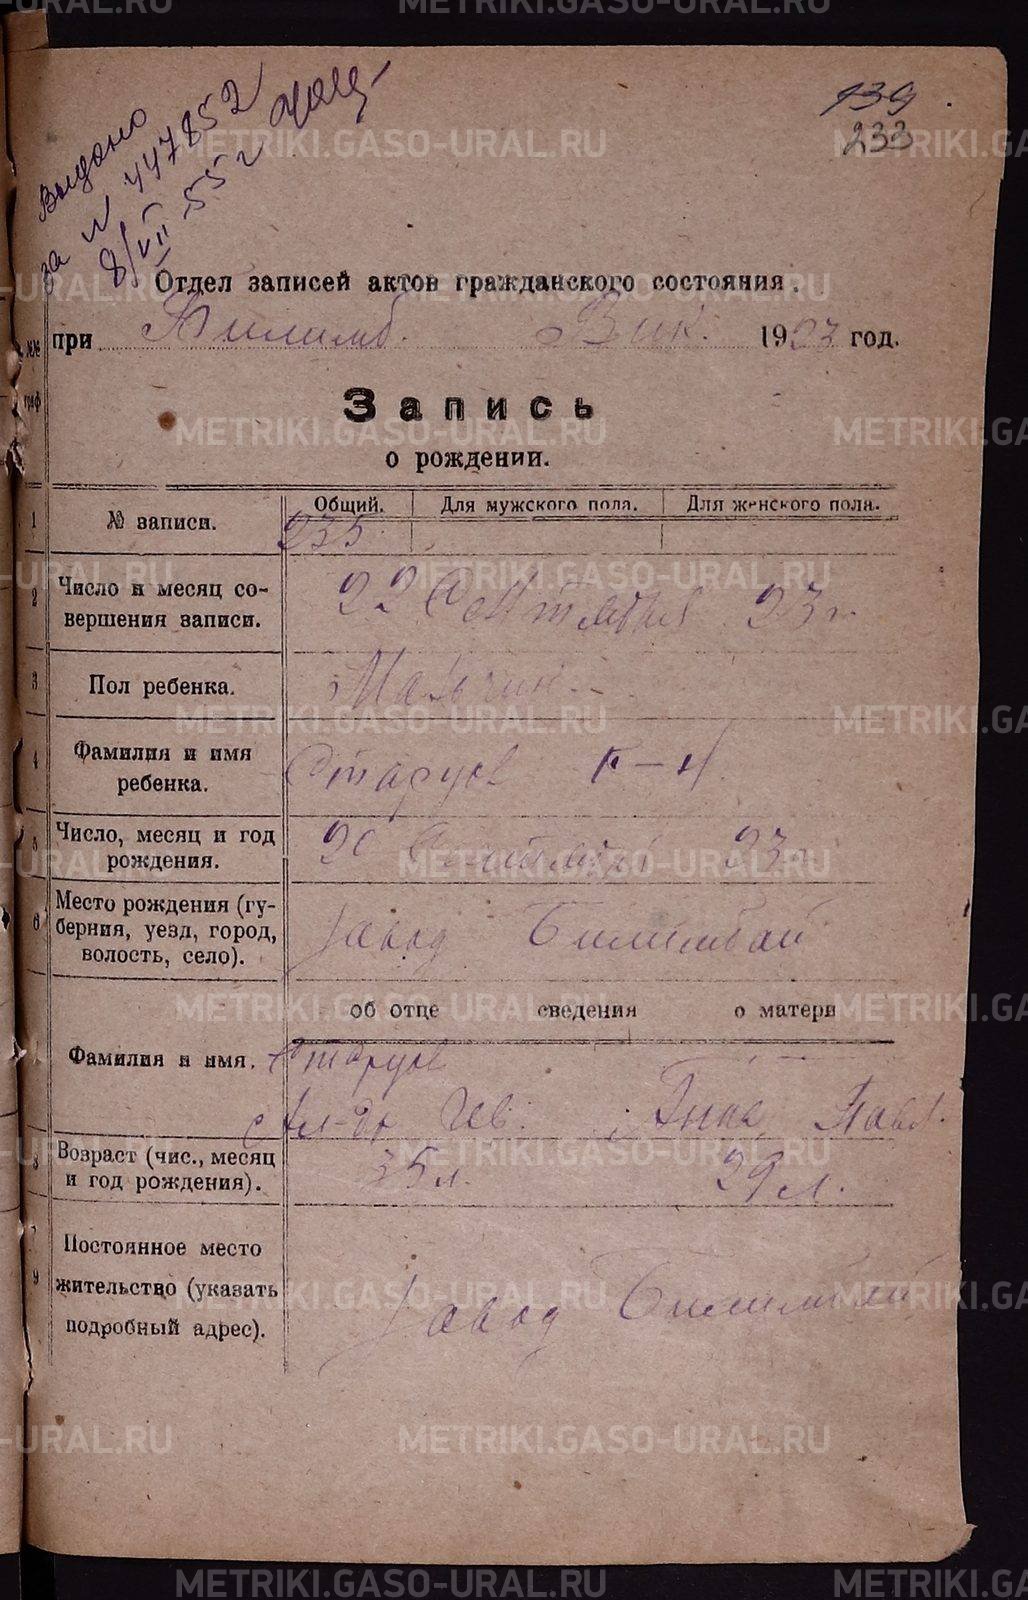 Выдано
за N 447852
8/VII 55 г
139
233
Отдел записей актов гражданского состояния.
№№ граф
при Билимб. Вик. 1923 год.
Запись
о рождении.
1 № записи. Общий. Для мужского пола. Для женского пола.
235
2 Число и месяц со-
вершения записи. 22 Сентября 23 г.
3 Пол ребенка. Мальчик
4 Фамилия и имя
ребенка. Старцев
5 Число, месяц и год
рождения. 20 Сентября 23 г.
6 Место рождения (гу-
берния, уезд, город,
волость, село). завод Билимбай
об отце сведения о матери
Фамилия и имя. Старцев
Ал-др Ив. Анна Павл.
8 Возраст (чис., месяц
и год рождения). 35 л. 29 л.
9 Постоянное место
жительство (указать
подробный адрес). завод Билимбай
METRIKI.GASO-URAL.RU